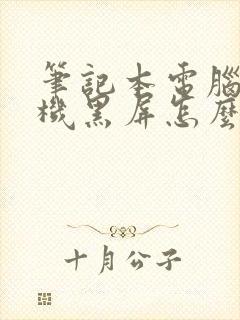 筆記本電腦
機黑屏怎麼
十月公子